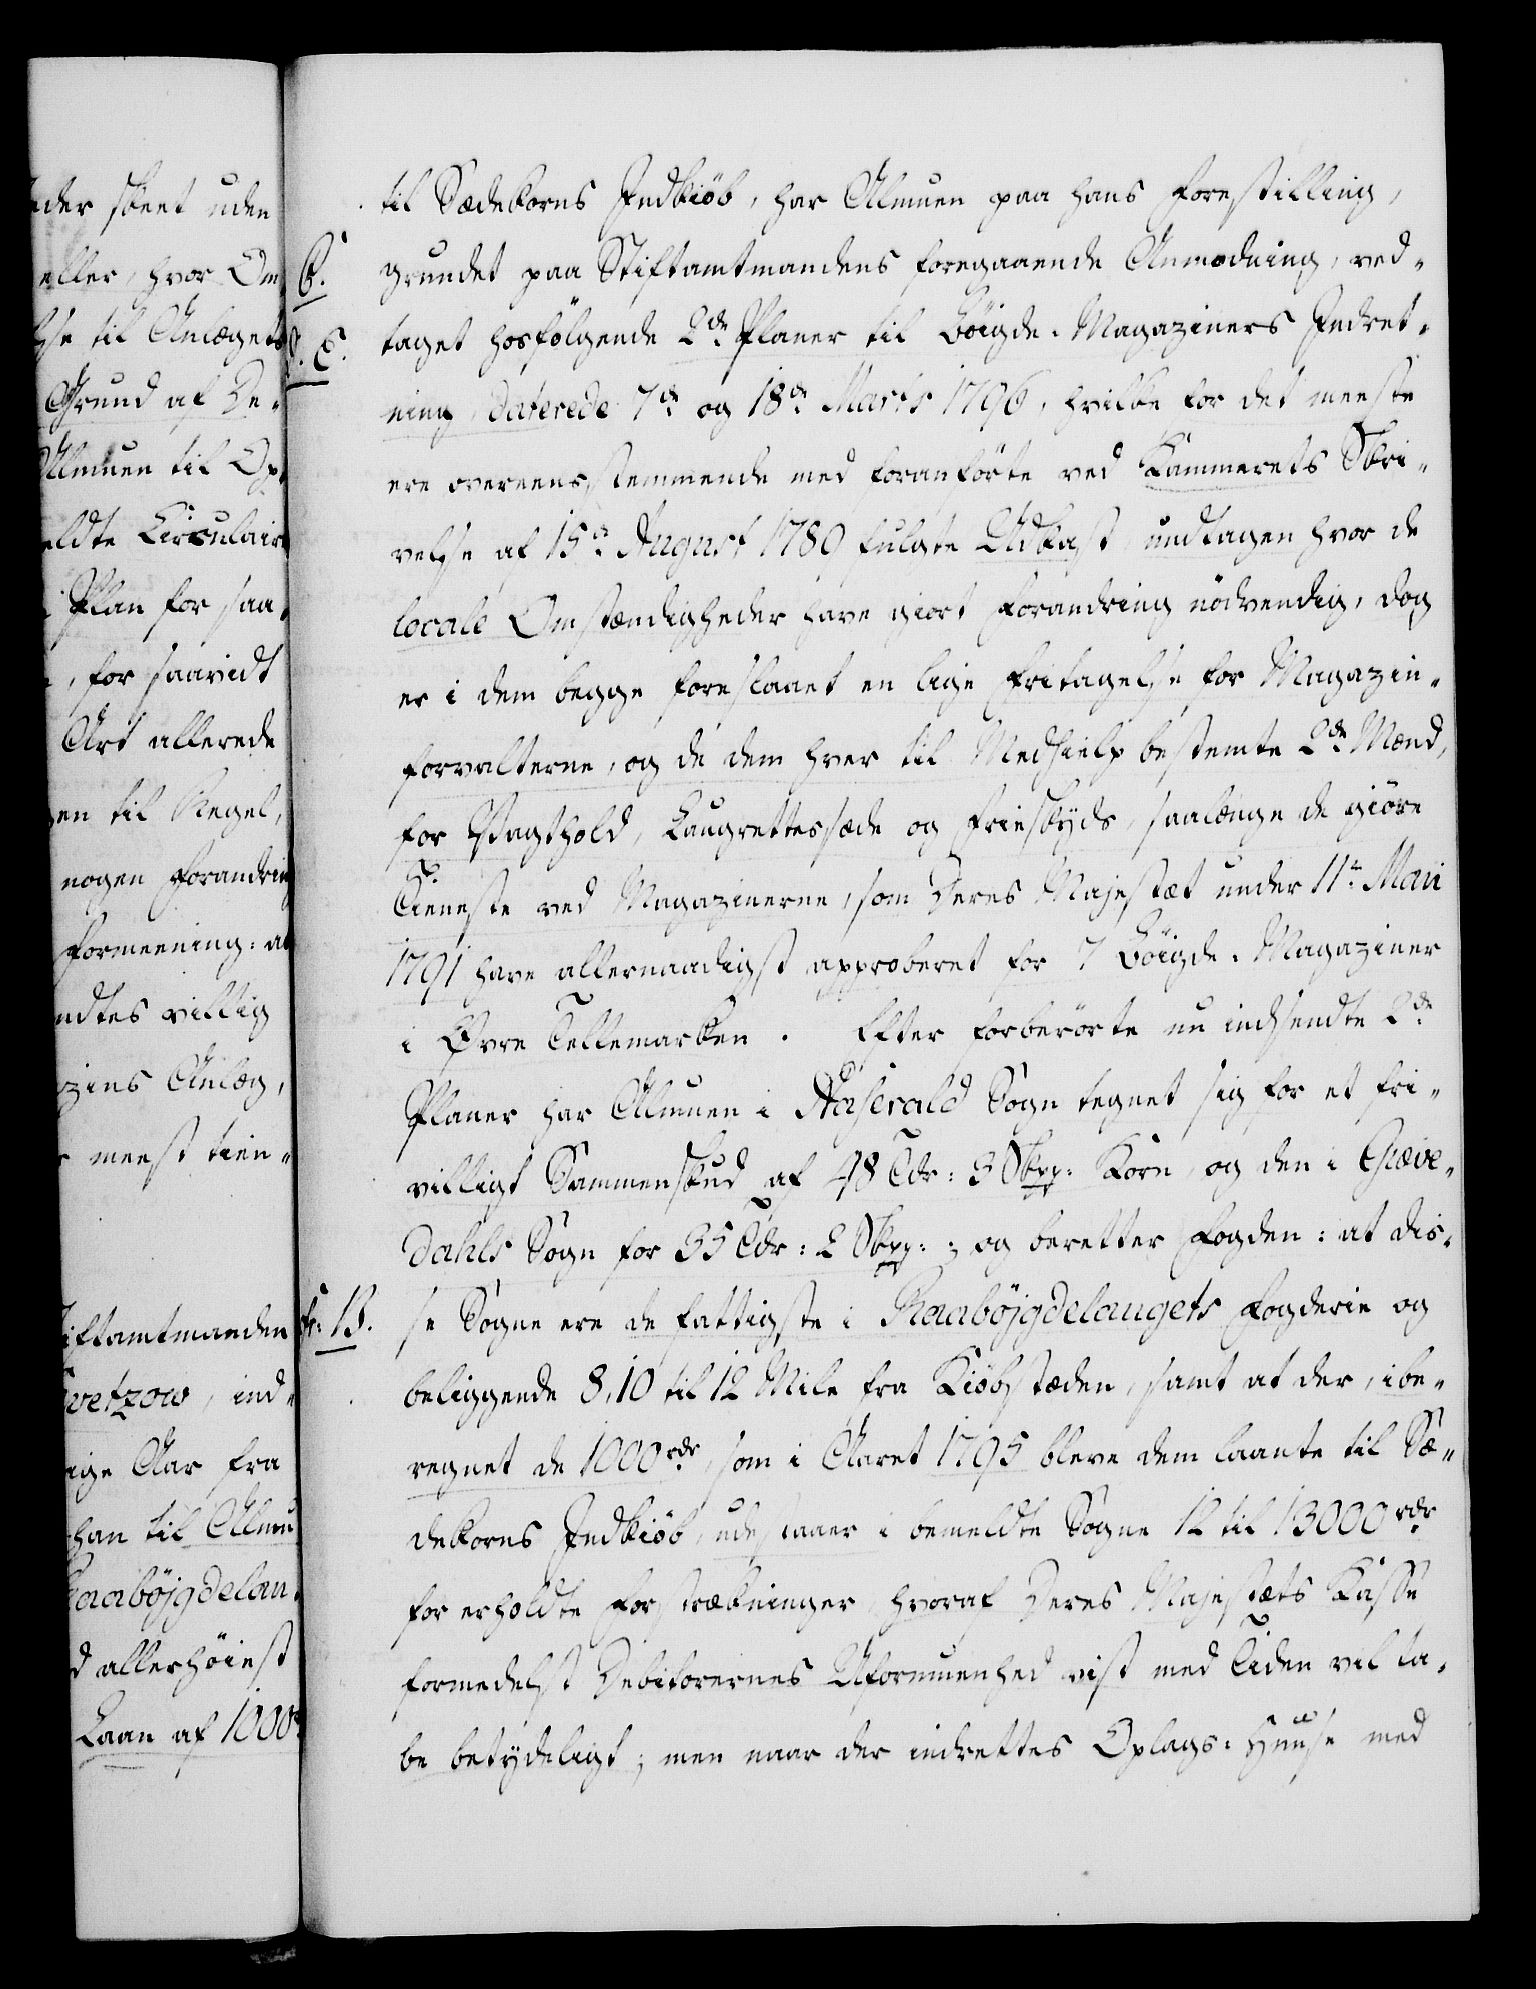 eder skeet uden
eller, hvor Om
lse til Anlægets
Grund af De-
Almuen til Op-
eldte Circulair
Plan for saa-
, for saavidt
Art allerede
gen til Regel,
nogen Forandring
Formeening: at
ndtes villig
zins Anlæg,
meest tien-
tiftamtmanden
vetzow, ind-
ige Aar fra
han til Almu
Raabøjgdelau-
d allerhøiest
Laan af 1000
til Sædekorns Indkiøb, har Almuen paa hans Forestilling,
C. grundet paa Stiftamtmandens foregaaende Anmodning, ved-
E. taget hosfölgende 2de Planer til Böigde-Magaziners Indret-
ning, daterede 7de og 18de Marts 1796, hvilke for det meeste
ere overeensstemmende med foranförte ved Kammerets Skri-
velse af 15de August 1780 fulgte Udkast, undtagen hvor de
locale Omstændigheder have giort Forandring nödvendig, dog
er i dem begge foreslaaet en lige Fritagelse for Magazin-
forvalterne, og de dem hver til Medhielp bestemte 2de Mænd,
for Vagthold, Laugrettessæde og Friskyds, saalænge de giöre
Tieneste ved Magazinerne, som Deres Majestæt under 11te Maii
1791 have allernaadigst approberet for 7 Böigde-Magaziner
i Øvre Tellemarken. Efter forberörte nu indsendte 2de
Planer har Almuen i Aaserald Sogn tegnet sig for et fri-
villigt Sammenskud af 48 Tdr: 3 Skpp: Korn, og den i Græve-
dahls Sogn for 35 Tdr: 2 Skpp: ; og beretter Fogden: at dis-
B. se Sogne ere de fattigste i Raabøjgdelaugets Fogderie og
beliggende 8, 10 til 12 Mile fra Kiöbstæden, samt at der, ibe-
regnet de 1000 rdr, som i Aaret 1795 bleve dem laante til Sæ-
dekorns Indkiöb, udestaaer i bemeldte Sogne 12 til 13000 rdr
for erholdte Forstrækninger, hvoraf Deres Majestæts Kasse
formedelst Debitorernes Uformuenhed vist med Tiden vil ta-
be betydeligt; men naar der indrettes Oplags-Huuse med